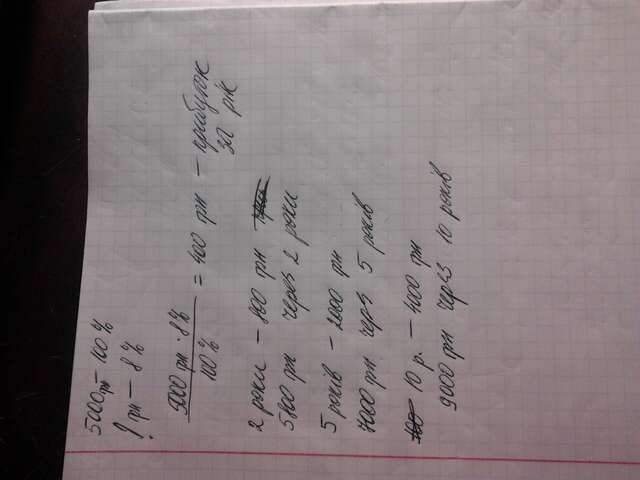 5000грн – 100%
? грн – 8%
5000 грн · 8% / 100% = 400 грн – прибуток за рік
2 роки – 800 грн
5800 грн через 2 роки
5 років – 2000 грн
7000 грн через 5 років
10 р. – 4000 грн
9000 грн через 10 років